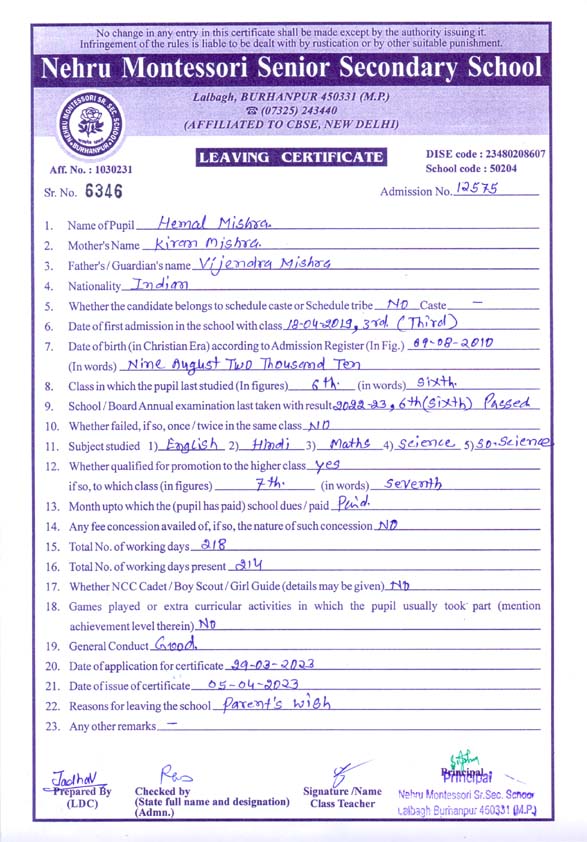 No change in any entry in this certificate shall be made except by the authority issuing it.
Infringement of the rules is liable to be dealt with by rustication or by other suitable punishment.
Nehru Montessori Senior Secondary School
Lalbagh, BURHANPUR 450331 (M.P.)
☎ (07325) 243440
(AFFILIATED TO CBSE, NEW DELHI)
NEHRU MONTESSORI SR. SEC. SCHOOL
BURHANPUR
LEAVING CERTIFICATE
DISE code : 23480208607
Aff. No. : 1030231
School code : 50204
Sr. No. 6346
Admission No. 12575
1. Name of Pupil Hemal Mishra.
2. Mother's Name Kiran Mishra.
3. Father's / Guardian's name Vijendra Mishra
4. Nationality Indian
5. Whether the candidate belongs to schedule caste or Schedule tribe NO Caste –
6. Date of first admission in the school with class 18-04-2019, 3rd. (Third)
7. Date of birth (in Christian Era) according to Admission Register (In Fig.) 09-08-2010
(In words) Nine August Two Thousand Ten
8. Class in which the pupil last studied (In figures) 6th. (in words) Sixth.
9. School / Board Annual examination last taken with result 2022-23, 6th (Sixth) Passed
10. Whether failed, if so, once / twice in the same class NO
11. Subject studied 1) English 2) Hindi 3) Maths 4) Science 5) SO.Science
12. Whether qualified for promotion to the higher class yes
if so, to which class (in figures) 7th. (in words) Seventh
13. Month upto which the (pupil has paid) school dues / paid Paid.
14. Any fee concession availed of, if so, the nature of such concession NO
15. Total No. of working days 218
16. Total No. of working days present 214
17. Whether NCC Cadet / Boy Scout / Girl Guide (details may be given) NO
18. Games played or extra curricular activities in which the pupil usually took part (mention
achievement level therein) NO
19. General Conduct Good.
20. Date of application for certificate 29-03-2023
21. Date of issue of certificate 05-04-2023
22. Reasons for leaving the school Parent's wish
23. Any other remarks –
Jadhav
Prepared By
(LDC)
Checked by
(State full name and designation)
(Admn.)
Signature /Name
Class Teacher
Principal
Principal
Nehru Montessori Sr.Sec. School
Lalbagh Burhanpur 450331 (M.P.)